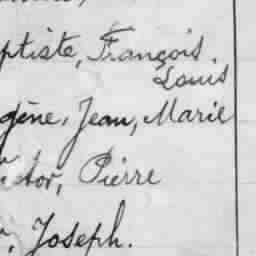 ptiste, François.
Louis
gène, Jean, Marie
ctor, Pierre
Joseph.